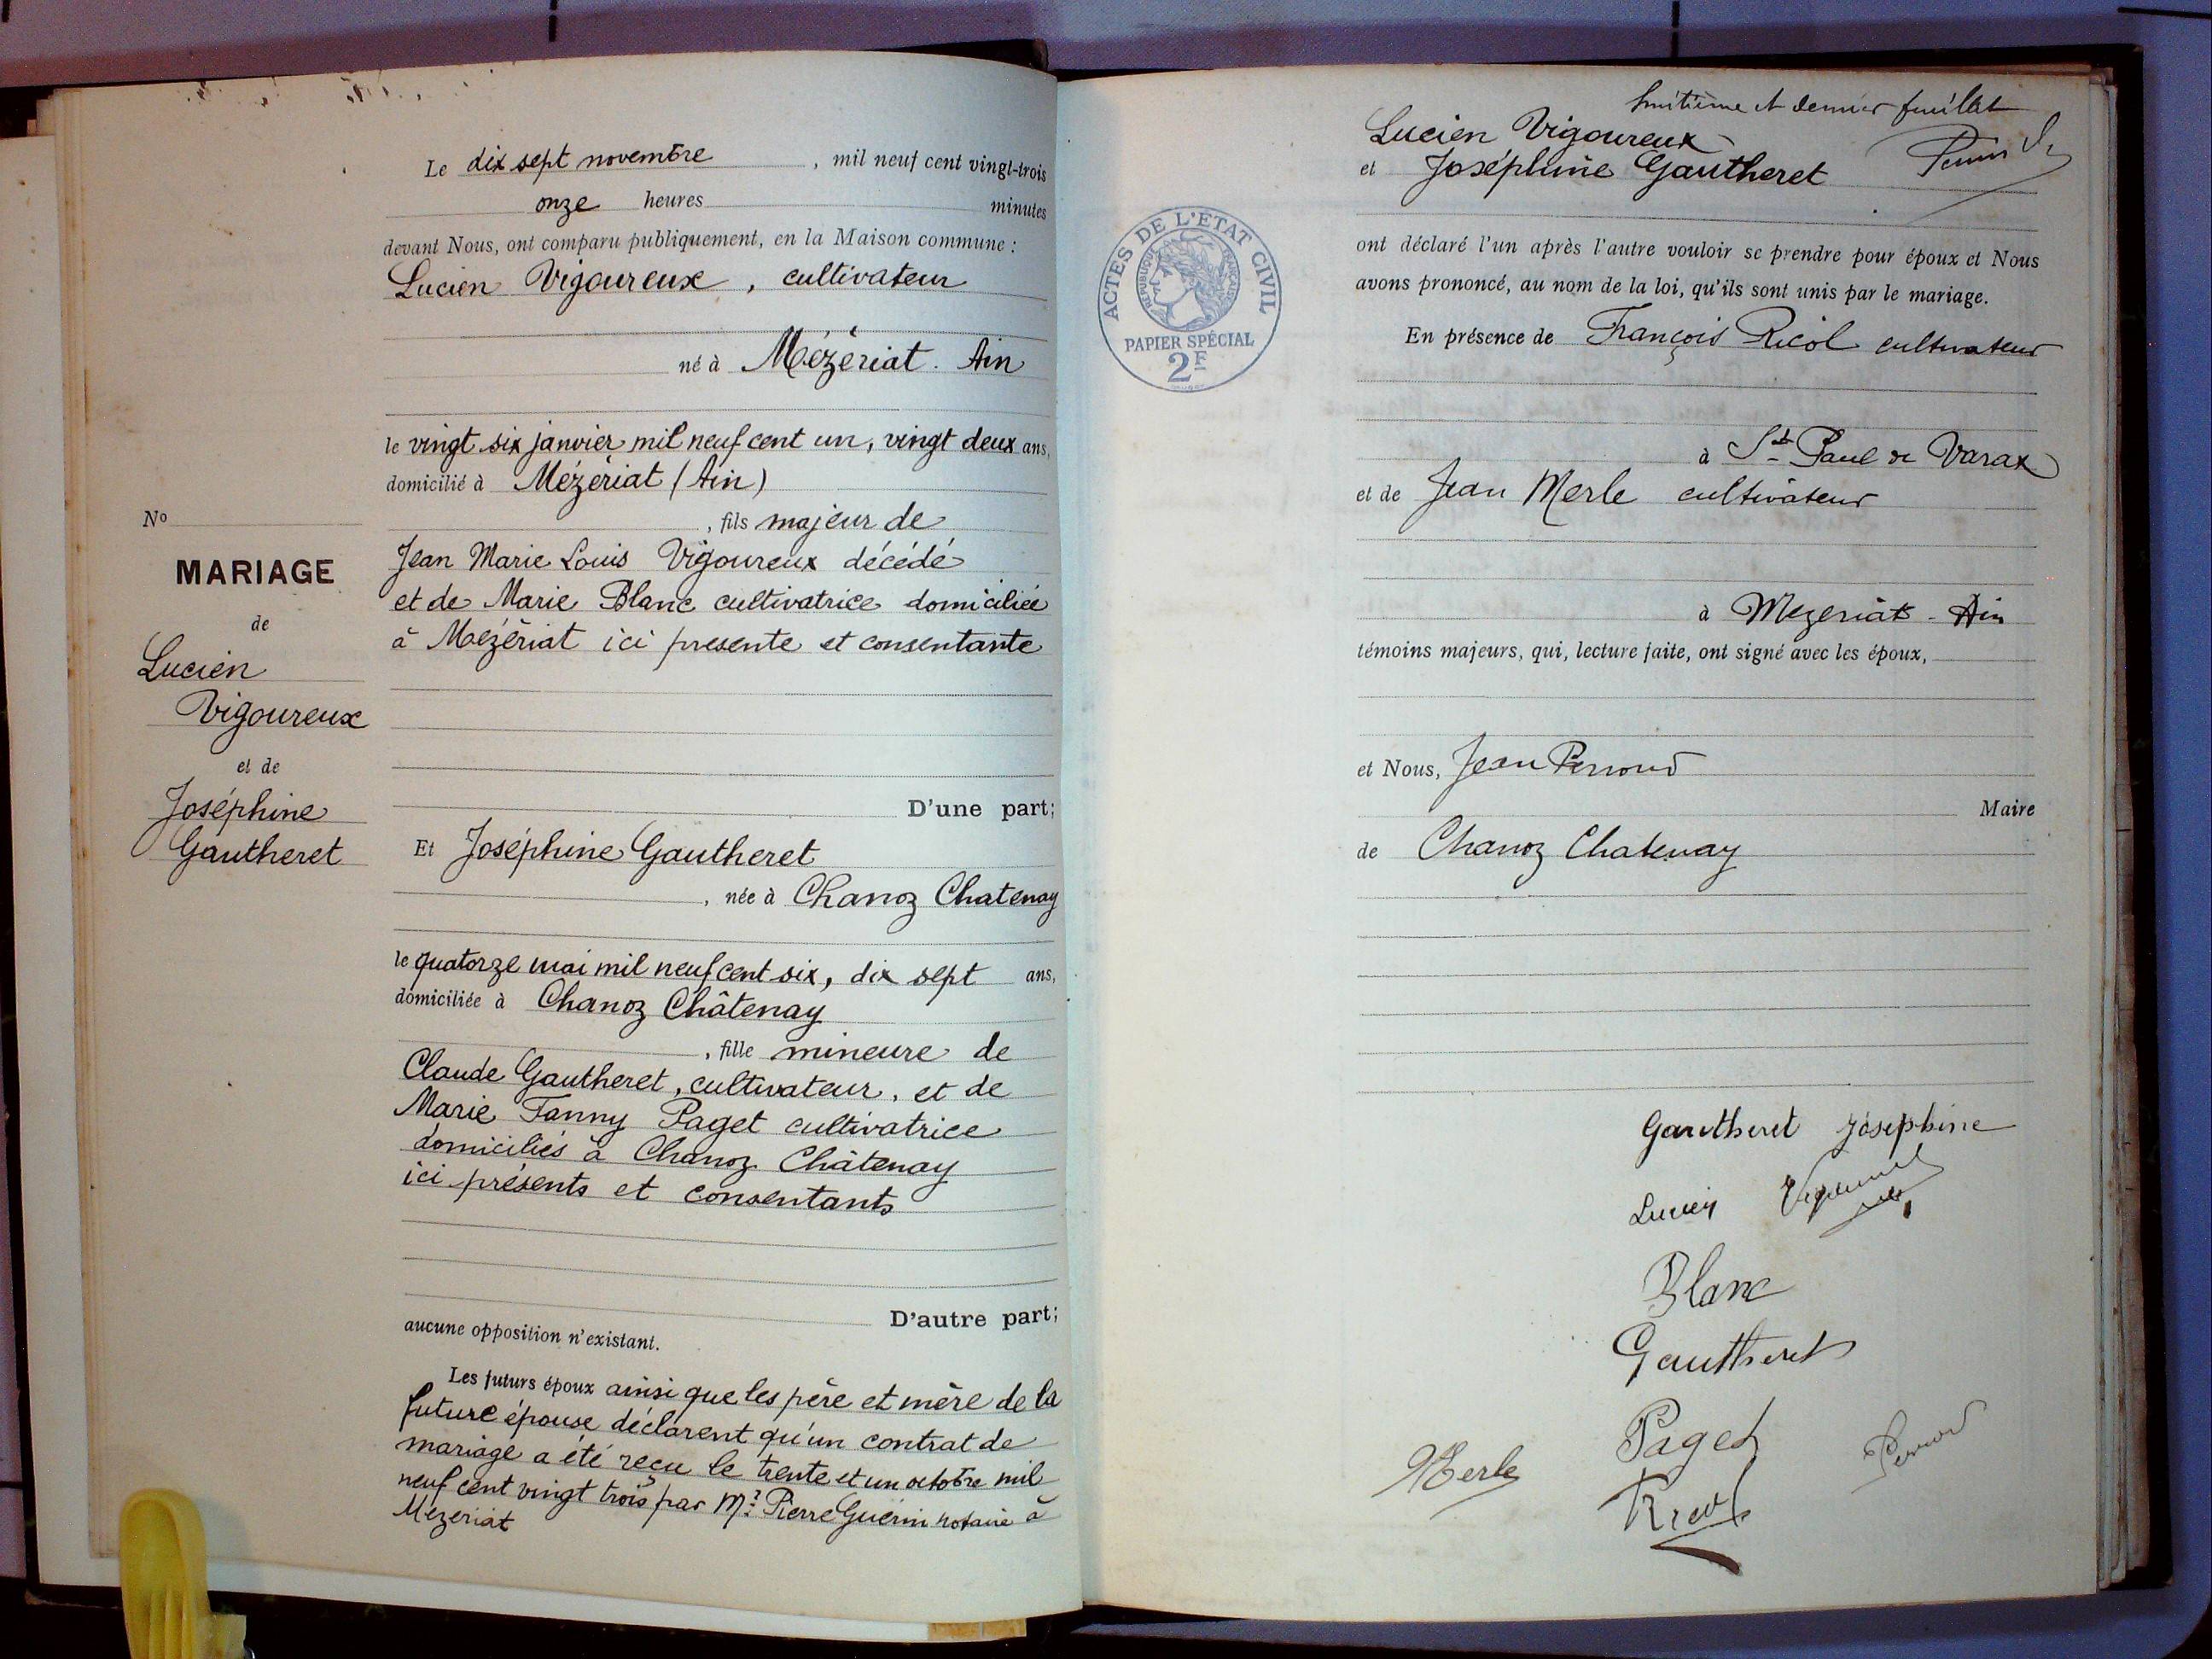 Le dix sept novembre, mil neuf cent vingt-trois
onze heures minutes
devant Nous, ont comparu publiquement, en la Maison commune :
Lucien Vigoureux, cultivateur
né à Mézériat. Ain
le vingt six janvier mil neuf cent un, vingt deux ans,
domicilié à Mézériat (Ain)
, fils majeur de
Jean Marie Louis Vigoureux décédé
et de Marie Blanc cultivatrice domiciliée
à Mézériat ici presente et consentante
D'une part;
Et Joséphine Gautheret
, née à Chanoz Chatenay
le quatorze mai mil neuf cent six, dix sept ans,
domiciliée à Chanoz Châtenay
, fille mineure de
Claude Gautheret, cultivateur, et de
Marie Fanny Paget cultivatrice
domiciliés à Chanoz Châtenay
ici présents et consentants
D'autre part;
aucune opposition n'existant.
Les futurs époux ainsi que les père et mère de la
future épouse déclarent qu'un contrat de
mariage a été reçu le trente et un octobre mil
neuf cent vingt trois par Me Pierre Guérin notaire à
Mezeriat
No
MARIAGE
de
Lucien
Vigoureux
et de
Joséphine
Gautheret
huitième et dernier feuillet
Lucien Vigoureux
et Joséphine Gautheret
ACTES DE L'ETAT CIVIL
REPUBLIQUE FRANÇAISE
PAPIER SPÉCIAL
2F
ont déclaré l'un après l'autre vouloir se prendre pour époux et Nous
avons prononcé, au nom de la loi, qu'ils sont unis par le mariage.
En présence de François Ricol cultivateur
à St Paul de Varax
et de Jean Merle cultivateur
à Mezeriat - Ain
témoins majeurs, qui, lecture faite, ont signé avec les époux,
et Nous, Jean Perroud
Maire
de Chanoz Chatenay
Gautheret Joséphine
Lucien Vigoureux
Blanc
Gautheret
Paget
Merle
Ricol
Perroud